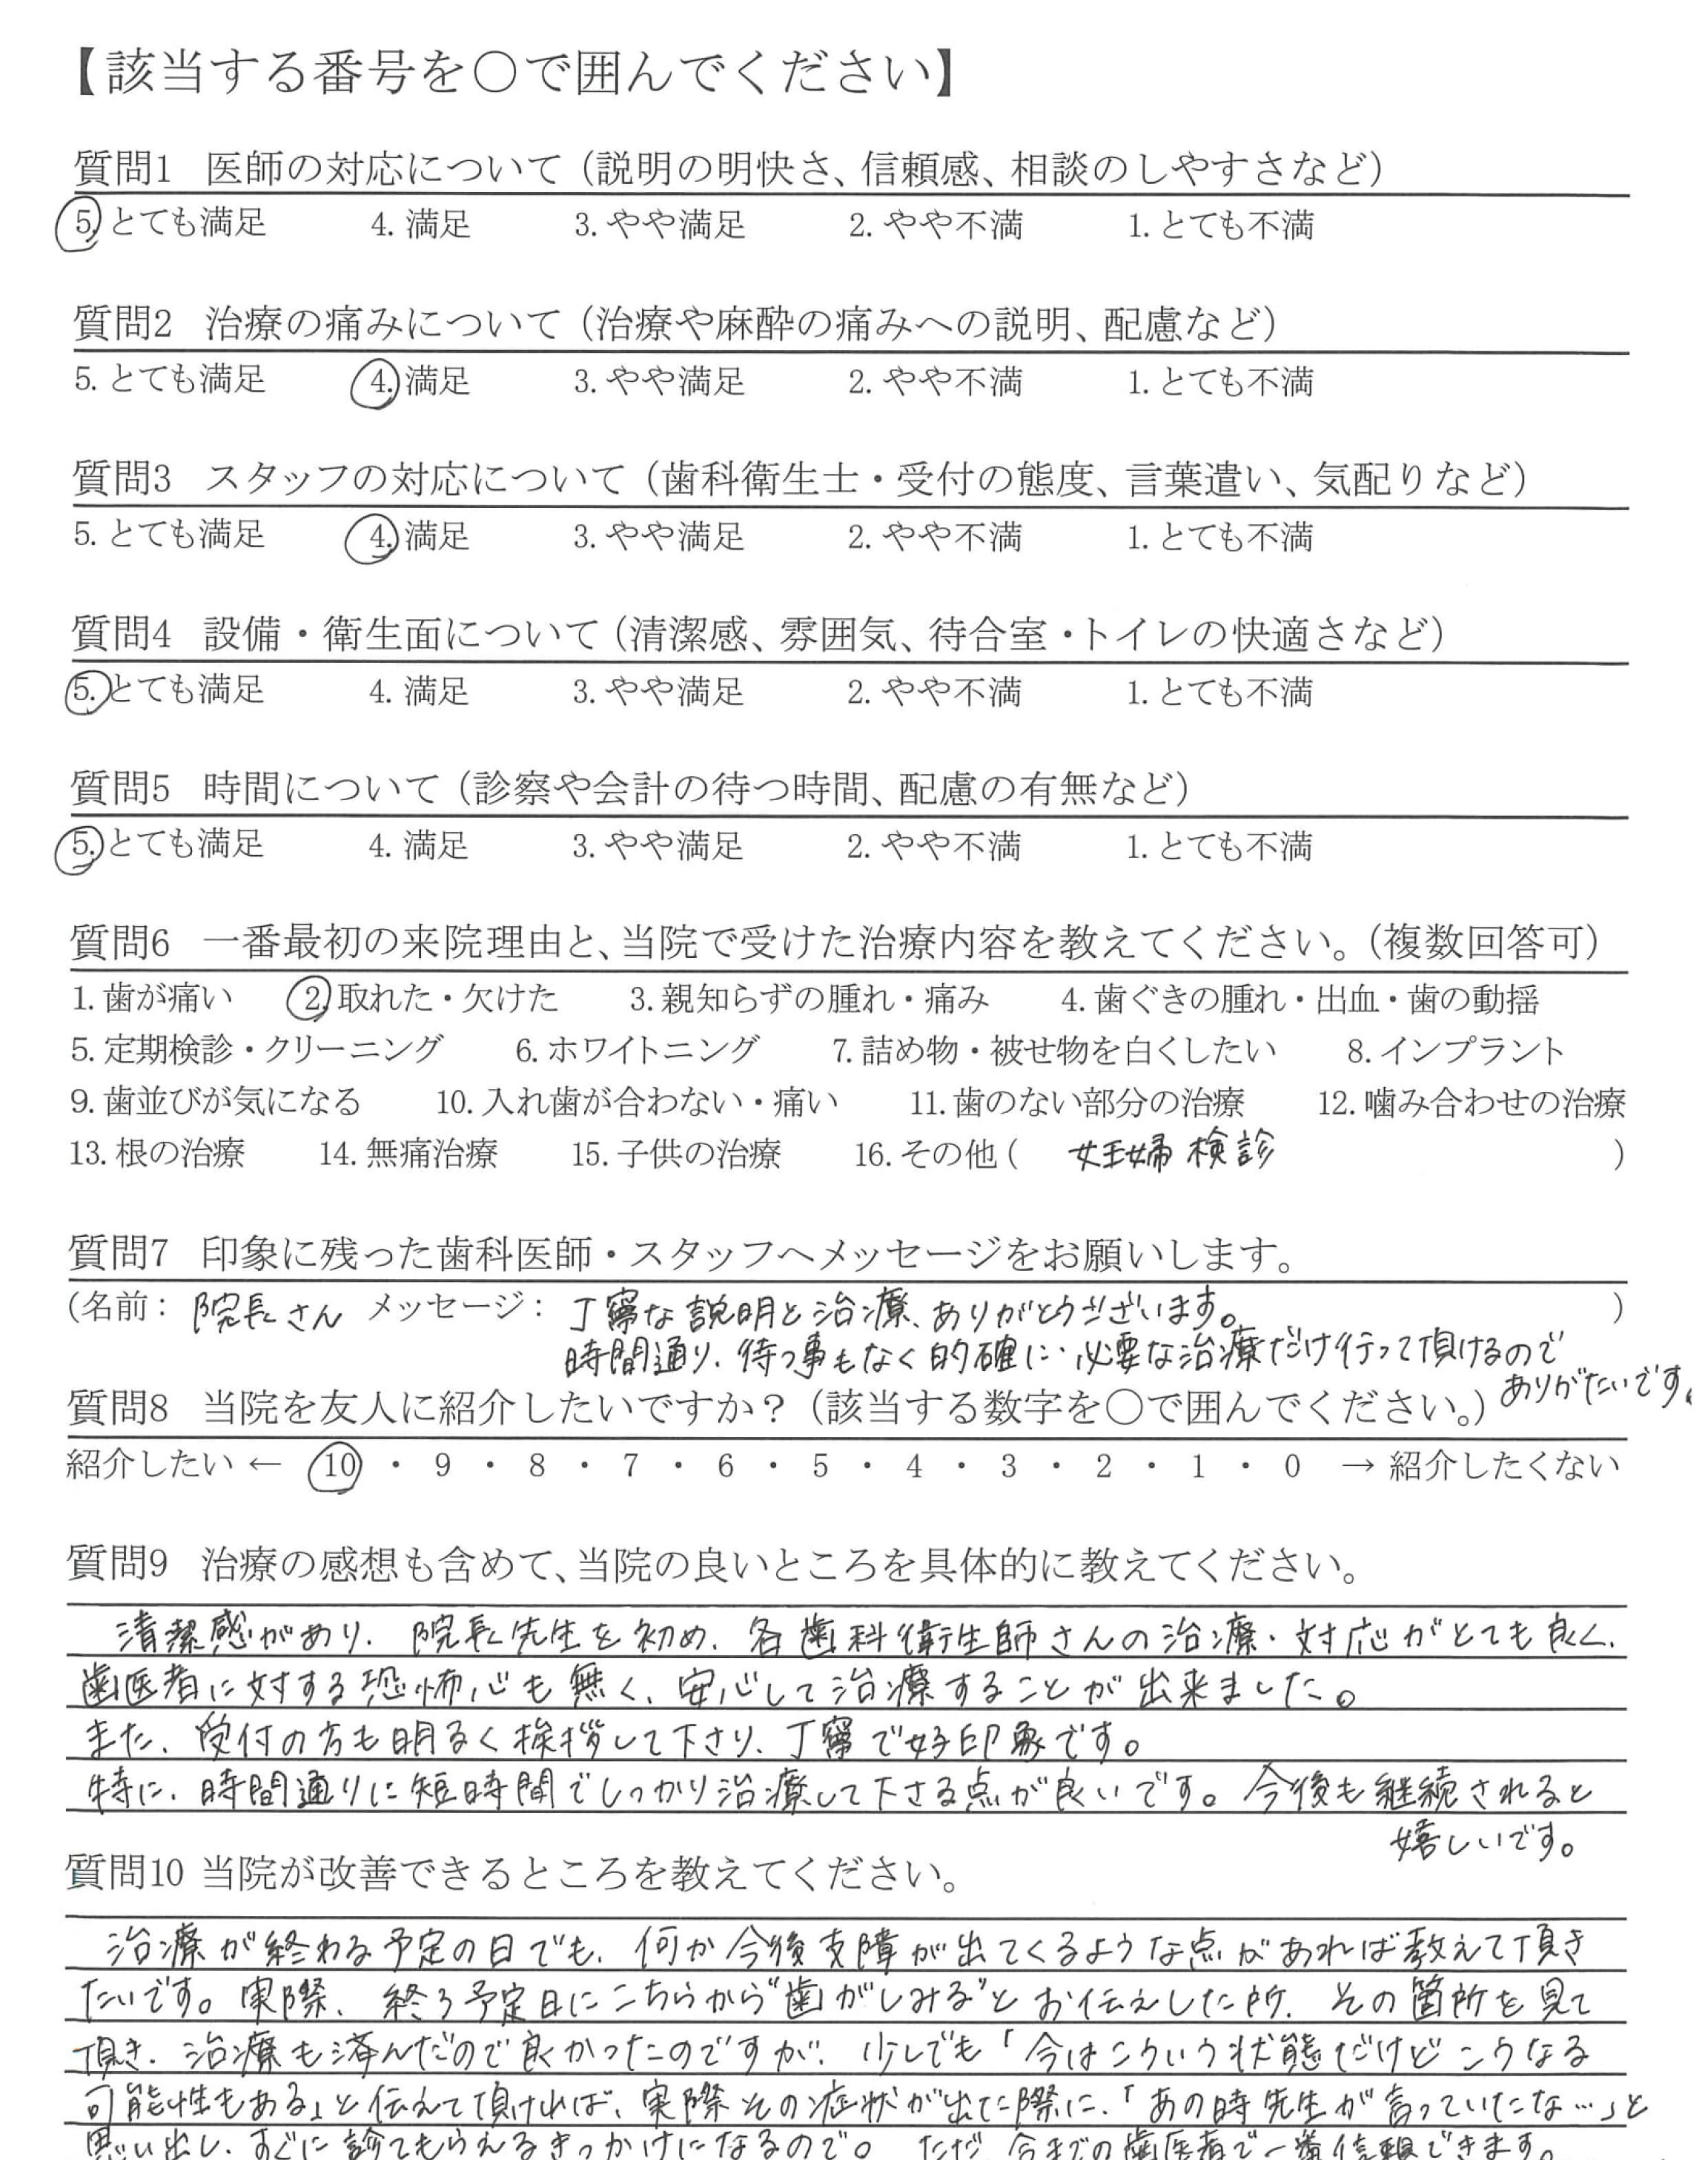 【該当する番号を○で囲んでください】
質問1 医師の対応について（説明の明快さ、信頼感、相談のしやすさなど）
5. とても満足 4. 満足 3. やや満足 2. やや不満 1. とても不満
質問2 治療の痛みについて（治療や麻酔の痛みへの説明、配慮など）
5. とても満足 4. 満足 3. やや満足 2. やや不満 1. とても不満
質問3 スタッフの対応について（歯科衛生士・受付の態度、言葉遣い、気配りなど）
5. とても満足 4. 満足 3. やや満足 2. やや不満 1. とても不満
質問4 設備・衛生面について（清潔感、雰囲気、待合室・トイレの快適さなど）
5. とても満足 4. 満足 3. やや満足 2. やや不満 1. とても不満
質問5 時間について（診察や会計の待つ時間、配慮の有無など）
5. とても満足 4. 満足 3. やや満足 2. やや不満 1. とても不満
質問6 一番最初の来院理由と、当院で受けた治療内容を教えてください。（複数回答可）
1. 歯が痛い 2. 取れた・欠けた 3. 親知らずの腫れ・痛み 4. 歯ぐきの腫れ・出血・歯の動揺
5. 定期検診・クリーニング 6. ホワイトニング 7. 詰め物・被せ物を白くしたい 8. インプラント
9. 歯並びが気になる 10. 入れ歯が合わない・痛い 11. 歯のない部分の治療 12. 噛み合わせの治療
13. 根の治療 14. 無痛治療 15. 子供の治療 16. その他（ 妊婦検診 ）
質問7 印象に残った歯科医師・スタッフへメッセージをお願いします。
（名前：院長さん メッセージ：丁寧な説明と治療、ありがとうございます。）
時間通り、待つ事もなく的確に、必要な治療だけ行って頂けるので
ありがたいです。
質問8 当院を友人に紹介したいですか？（該当する数字を○で囲んでください。）
紹介したい ← 10 ・ 9 ・ 8 ・ 7 ・ 6 ・ 5 ・ 4 ・ 3 ・ 2 ・ 1 ・ 0 → 紹介したくない
質問9 治療の感想も含めて、当院の良いところを具体的に教えてください。
清潔感があり、院長先生を初め、各歯科衛生師さんの治療・対応がとても良く、
歯医者に対する恐怖心も無く、安心して治療することが出来ました。
また、受付の方も明るく挨拶して下さり、丁寧で好印象です。
特に、時間通りに短時間でしっかり治療して下さる点が良いです。今後も継続されると
嬉しいです。
質問10 当院が改善できるところを教えてください。
治療が終わる予定の日でも、何か今後支障が出てくるような点があれば教えて頂き
たいです。実際、終る予定日にこちらから"歯がしみる"とお伝えした所、その箇所を見て
頂き、治療も済んだので良かったのですが、少しでも「今はこういう状態だけどこうなる
可能性もある」と伝えて頂ければ、実際その症状が出た際に、「あの時先生が言っていたな…」と
思い出し、すぐに診てもらえるきっかけになるので。ただ、今までの歯医者で一番信頼できます。